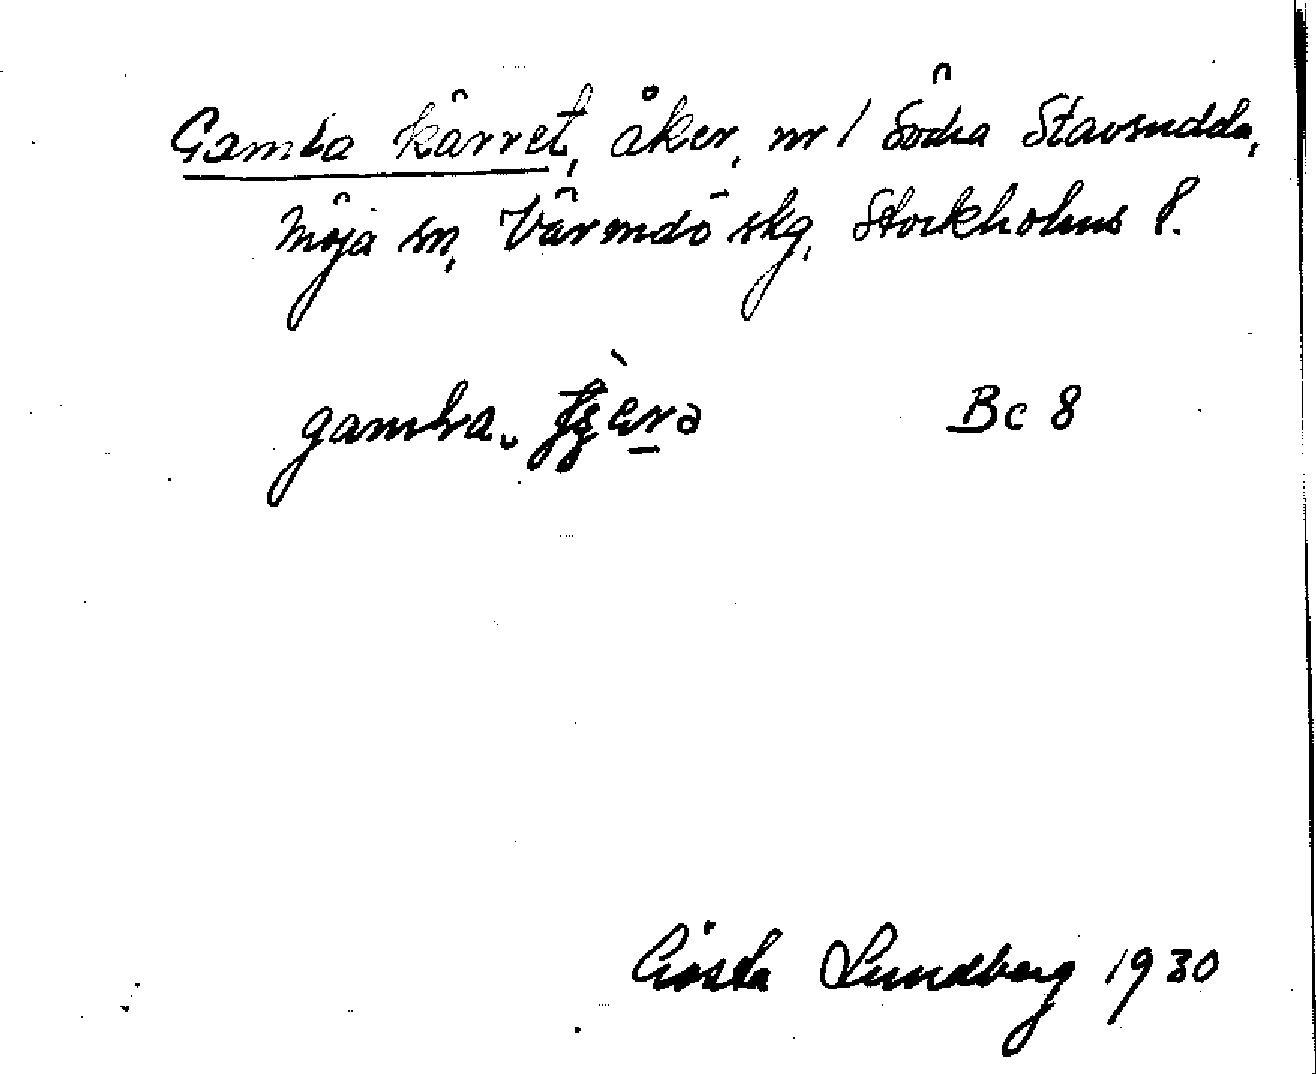 Gamba kärret, åker, nr 1 Södra Stavsudda,
Möja sn, Värmdö skg, Stockholms l.
gamba
Bc 8
Gösta Lundberg 1930